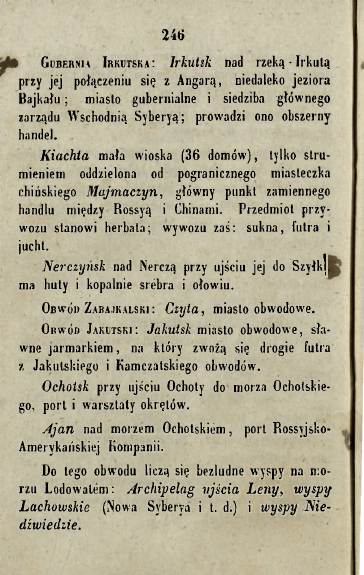 246
Gubernia Irkutska: Irkutsk nad rzeką Irkutą
przy jej połączeniu się z Angarą, niedaleko jeziora
Bajkału; miasto gubernialne i siedziba głównego
zarządu Wschodnią Syberyą; prowadzi ono obszerny
handel.
Kiachta mała wioska (36 domów), tylko stru-
mieniem oddzielona od pogranicznego miasteczka
chińskiego Majmaczyn, główny punkt zamiennego
handlu między Rossyą i Chinami. Przedmiot przy-
wozu stanowi herbata; wywozu zaś: sukna, futra i
jucht.
Nerczyńsk nad Nerczą przy ujściu jej do Szyłki
ma huty i kopalnie srebra i ołowiu.
Obwód Zabajkalski: Czyta, miasto obwodowe.
Obwód Jakutski: Jakutsk miasto obwodowe, sła-
wne jarmarkiem, na który zwożą się drogie futra
z Jakutskiego i Kamczatskiego obwodów.
Ochotsk przy ujściu Ochoty do morza Ochotskie-
go, port i warsztaty okrętów.
Ajan nad morzem Ochotskiém, port Rossyjsko-
Amerykańskiej Kompanii.
Do tego obwodu liczą się bezludne wyspy na mo-
rzu Lodowatém: Archipelag ujścia Leny, wyspy
Lachowskie (Nowa Syberya i t. d.) i wyspy Nie-
dźwiedzie.